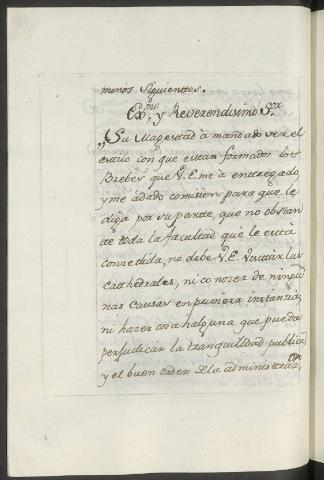 minos siguienttes.
Ex.mo y Reverendisimo S.or
„ Su Magesttad à mandado ver el
estilo con que estan formados los
Brebes que V.E. me à enttregado,
y me àdado comision para que le
diga por su partte, que no obstan
tte toda la facultad que le està
concedida, no debe V.E. Visitar las
Catthedrales, ni conozer de ningu
nas Causas en primera instanzia,
ni hazer cosa nalguna que pueda
perjudicar la tranquilidad publica,
y el buen orden de la administraz.on